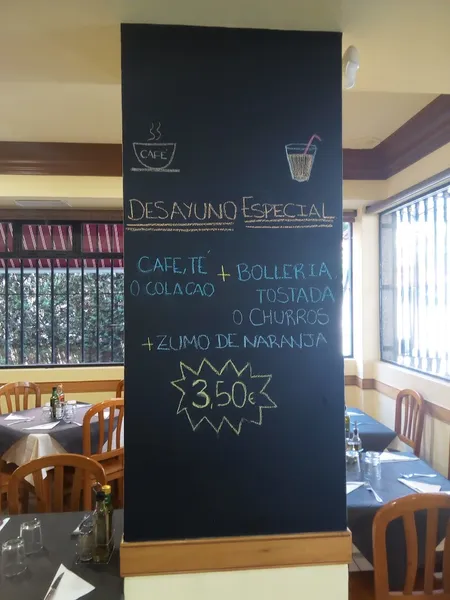 CAFE
DESAYUNO ESPECIAL
CAFE, TÉ + BOLLERIA
O COLACAO TOSTADA
O CHURROS
+ ZUMO DE NARANJA
3,50€